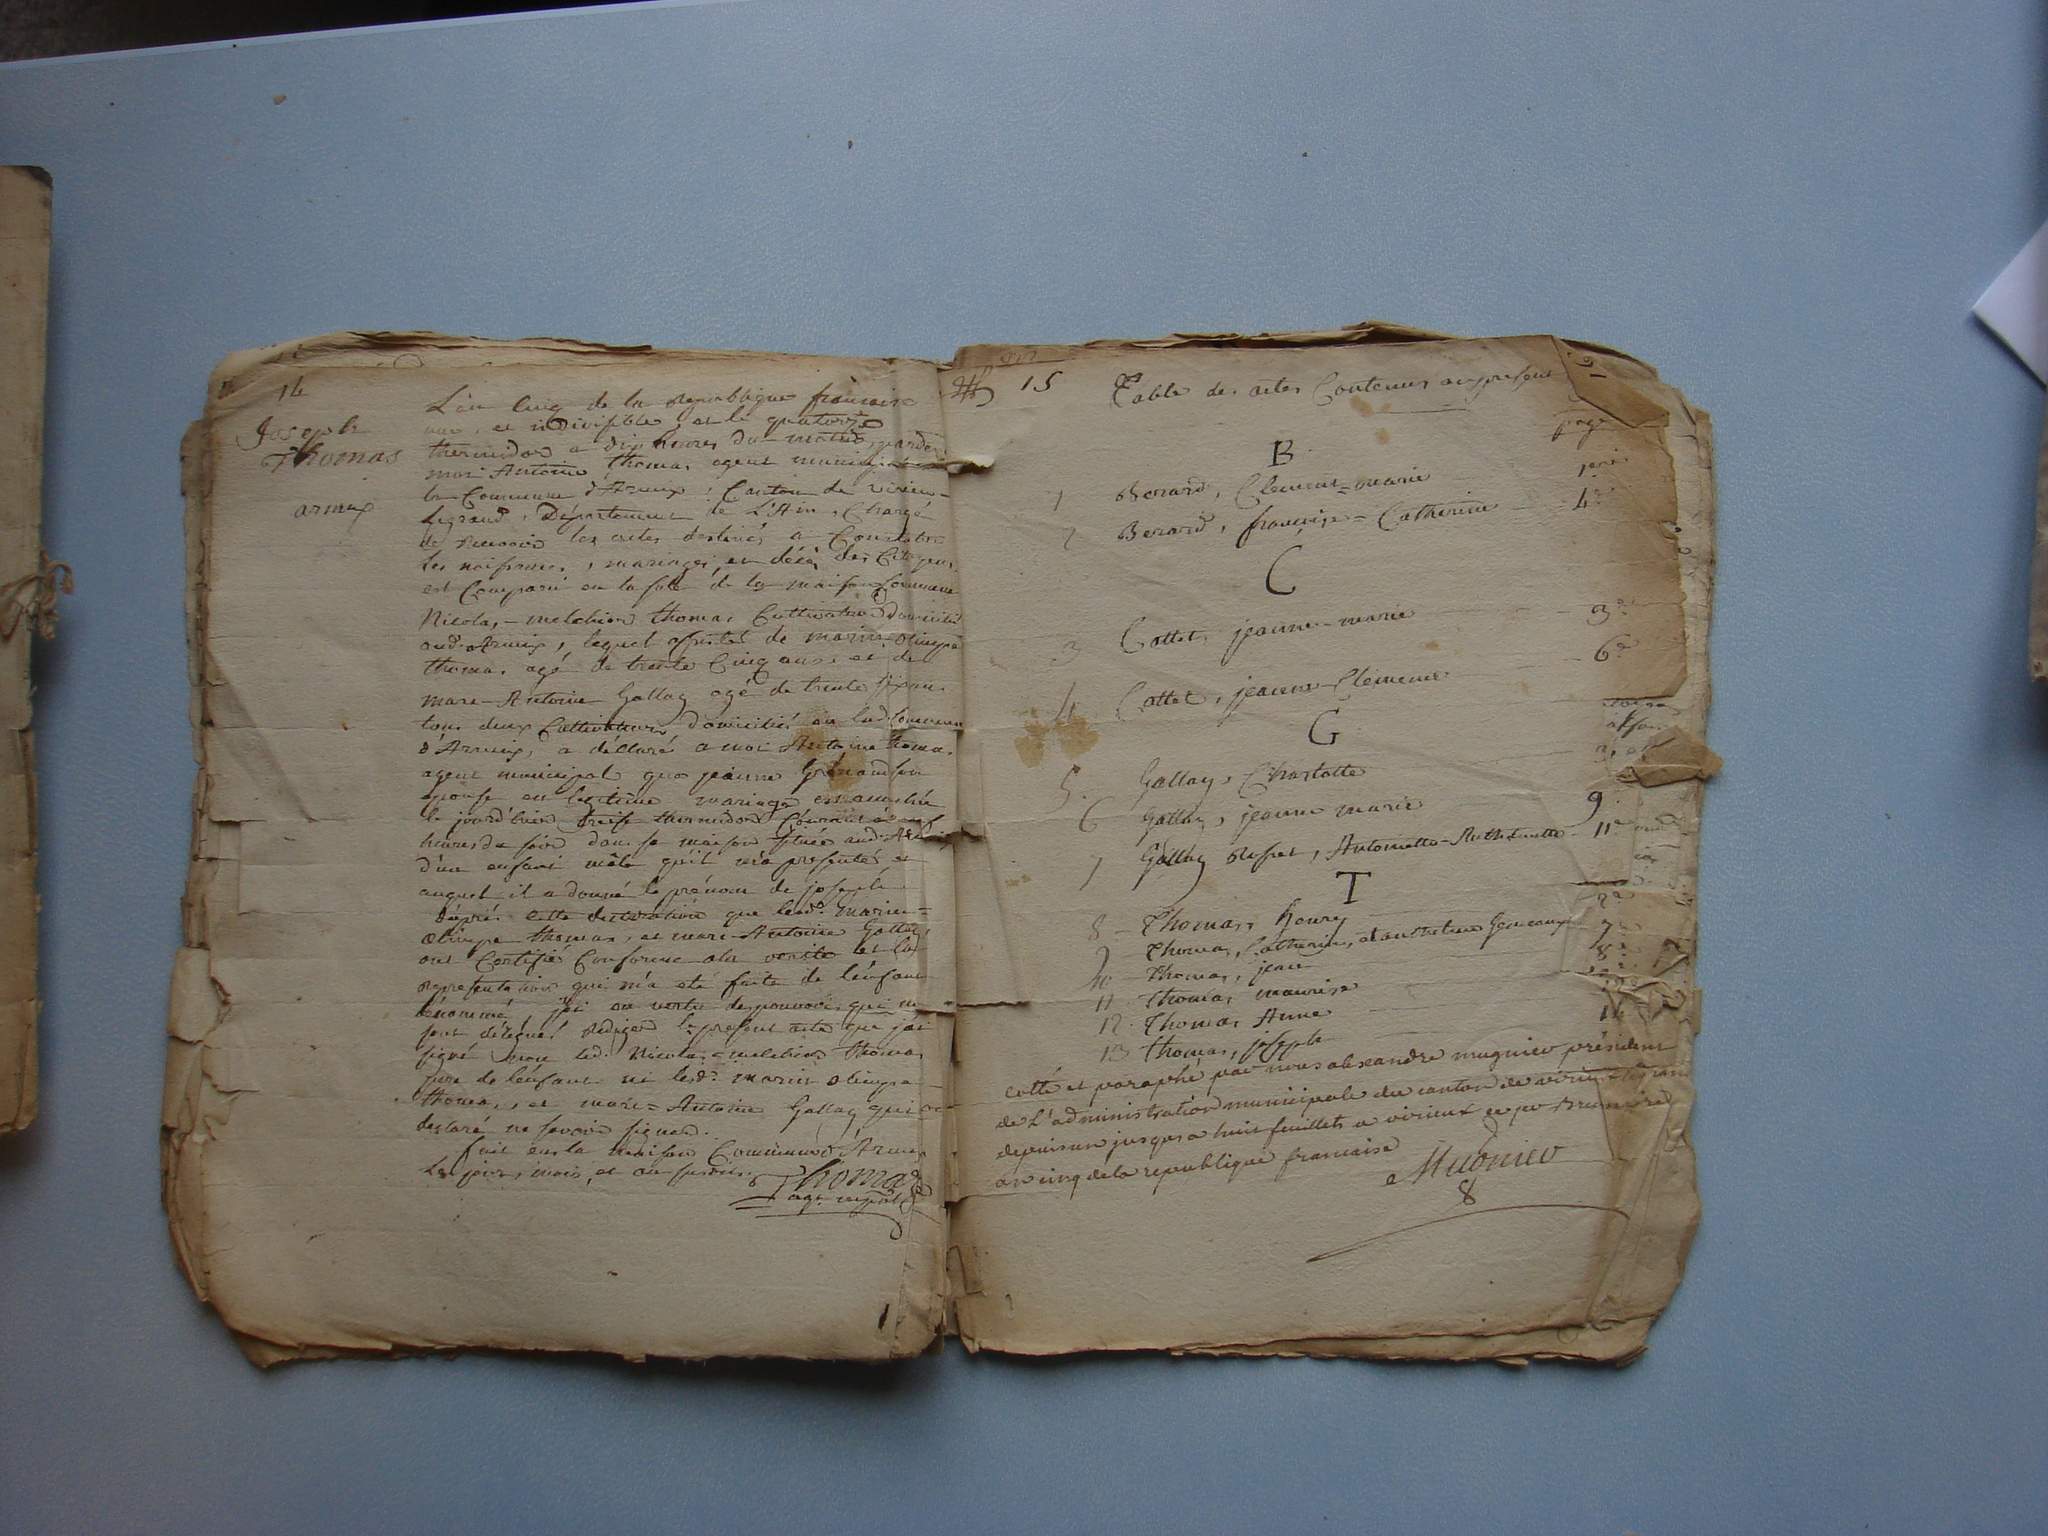 14
Joseph
Thomas
armix
L'an Cinq de la Republique francaise
une, et indivisible, et le quatorze
thermidor a dix heures du matin, pardevant
moi Antoine thomas agent municipal de
la Commune d'Armix, Canton de virieu-
legrand, Département de L'Ain, Chargé
de recevoir les actes destinés a Constater
les naissances, mariages, et décès des Citoyens,
est Comparu en la sale de la maison Commune
Nicolas-melchior thomas Cultivateur domicilié
aud. Armix, lequel assisté de marin-olimpe
thomas agé de trente Cinq ans, et de
marc-Antoine Gallay agé de trente six ans
tous deux Cultivateurs domiciliés en lad. Commune
d'Armix, a déclaré a moi Antoine thomas
agent municipal que jeanne
epouse en legitime mariage est accouchée
le jourd'hier treise thermidor Courant a neuf
heures du soir dans sa maison située aud. Armix
d'un enfant mâle qu'il m'a presenté et
auquel il a donné le prénom de joseph
d'après cette declaration que lesd. marin-
olimpe thomas, et marc-Antoine Gallay
ont Certifié Conforme a la verité et la
representation qui m'a eté faite de l'enfant
dénommé, j'ai en vertu des pouvoirs qui me
sont délégués rediger le present acte que j'ai
signé non led. Nicolas-melchior thomas
pere de l'enfant ni lesd. marin olimpe
thomas, et marc=Antoine Gallay qui ont
declaré ne savoir signer.
fait en la maison Commune d'Armix
Les jour, mois, et an susdits.
Thomas
agt. mpal
15 Table des actes Contenus au present
page
B
1 Berard, Clement=marie 1ere
2 Berard, françoise=Catherine 4e
C
3 Cottet, jeanne-marie 3e
4 Cottet, jeanne-Clemence 6e
G
5. Gallay, Charlotte
6 Gallay, jeanne marie 9
7 Gallay Rosset, Antoinette-Anthelmette 11e
T
8 - Thomas, henry 2e
9 Thomas, Catherine, et anthelme Gemeaux 7e
10 Thomas, jean 8e
11 Thomas, maurise
12. Thomas, Anne
13 thomas, joseph 14
cotté et paraphé par nous alexandre mugnier président
de L'administration municipale du canton de virieu legrand
depuis un jusques a huit feuillets a virieux ce 1er Brumaire
an cinq de la republique francaise
Mugnier
8